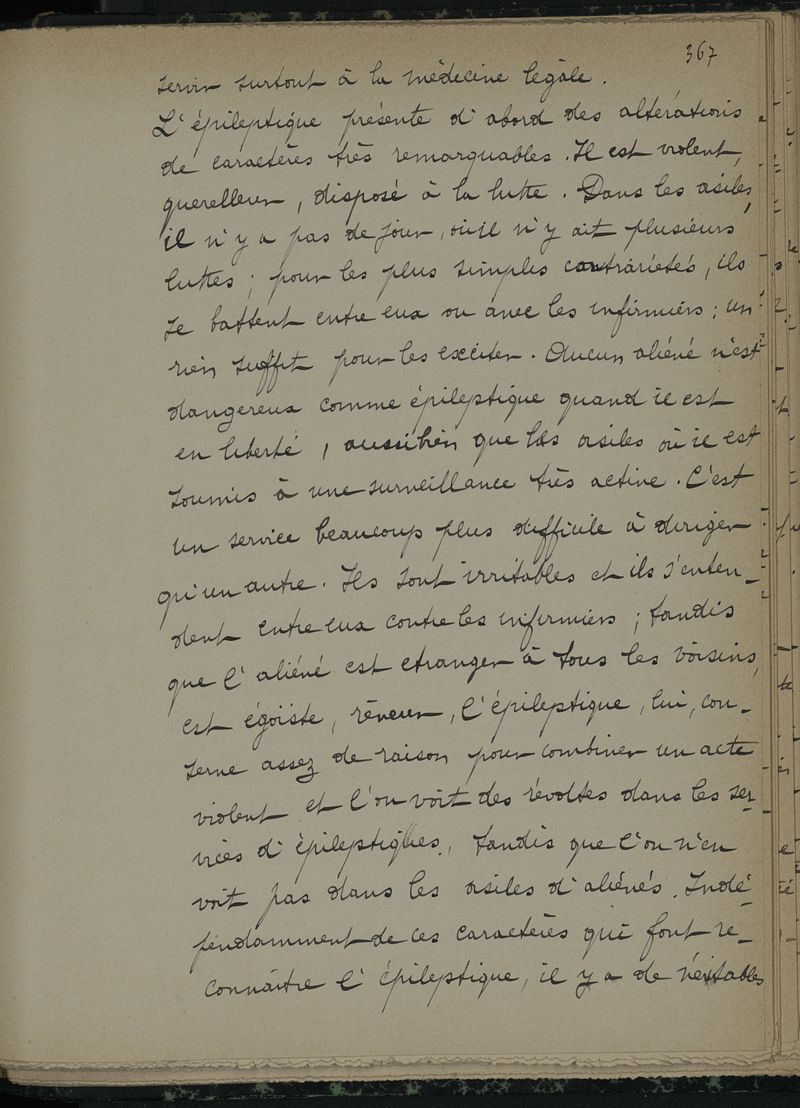 367
servir surtout à la médecine légale.
L'épileptique présente d'abord des altérations
de caractères très remarquables. Il est violent,
querelleur, disposé à la lutte. Dans les asiles,
il n'y a pas de jour, où il n'y ait plusieurs
luttes; pour les plus simples contrariétés, ils
se battent entre eux ou avec les infirmiers; un
rien suffit pour les exciter. Aucun aliéné n'est
dangereux comme épileptique quand il est
en liberté, aussi bien que les asiles où il est
soumis à une surveillance très active. C'est
un service beaucoup plus difficile à diriger
qu'un autre. Ils sont irritables et ils s'enten-
dent entre eux contre les infirmiers; tandis
que l'aliéné est etranger à tous les voisins,
est égoïste, rêveur, l'épileptique, lui, con-
serve assez de raison pour combiner un acte
violent et l'on voit des révoltes dans les ser-
vices d'épileptiques, tandis que l'on n'en
voit pas dans les asiles d'aliénés. Indé-
pendamment de ces caractères qui font re-
connaître l'épileptique, il y a de véritables